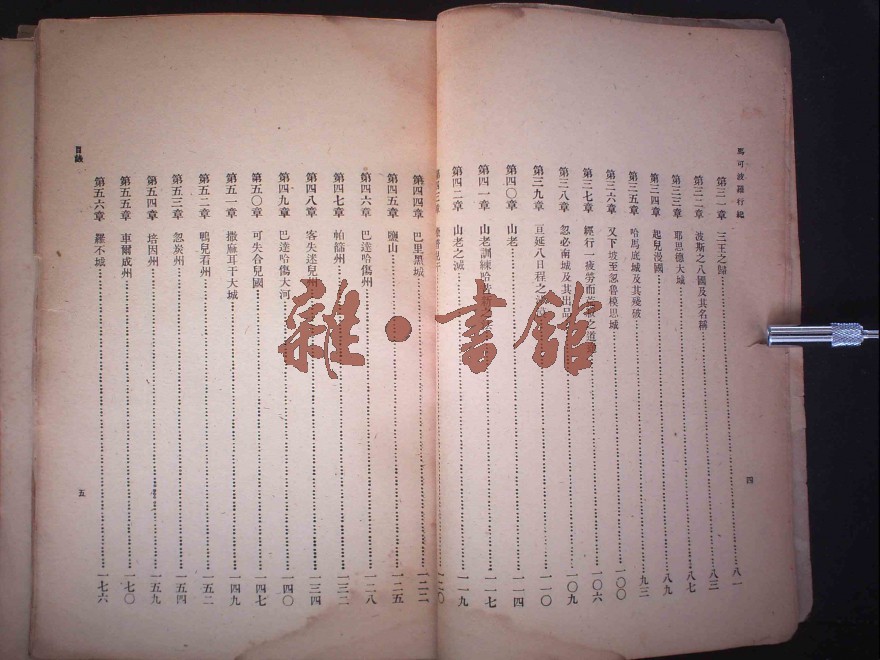 馬可波羅行紀
第三一章 三王之歸 八一
第三二章 波斯之八國及其名稱 八三
第三三章 耶思德大城 八七
第三四章 起兒漫國 八九
第三五章 哈馬底城及其殘破 九三
第三六章 又下坡至忽魯模思城 一〇〇
第三七章 經行一疲勞而 之道 一〇六
第三八章 忽必南城及其出品 一〇九
第三九章 亘延八日程之 一一〇
第四〇章 山老 一一四
第四一章 山老訓練哈 一一七
第四二章 山老之滅 一一九
第四三章 一二〇
四
第四四章 巴里黑城 一二二
第四五章 鹽山 一二五
第四六章 巴達哈傷州 一二八
第四七章 帕篩州 一三二
第四八章 客失迷兒州 一三四
第四九章 巴達哈傷大河 一四〇
第五〇章 可失合兒國 一四七
第五一章 撒麻耳干大城 一四九
第五二章 鴨兒看州 一五二
第五三章 忽炭州 一五四
第五四章 培因州 一五九
第五五章 車爾成州 一七〇
第五六章 羅不城 一七六
目錄
五
雜·書館